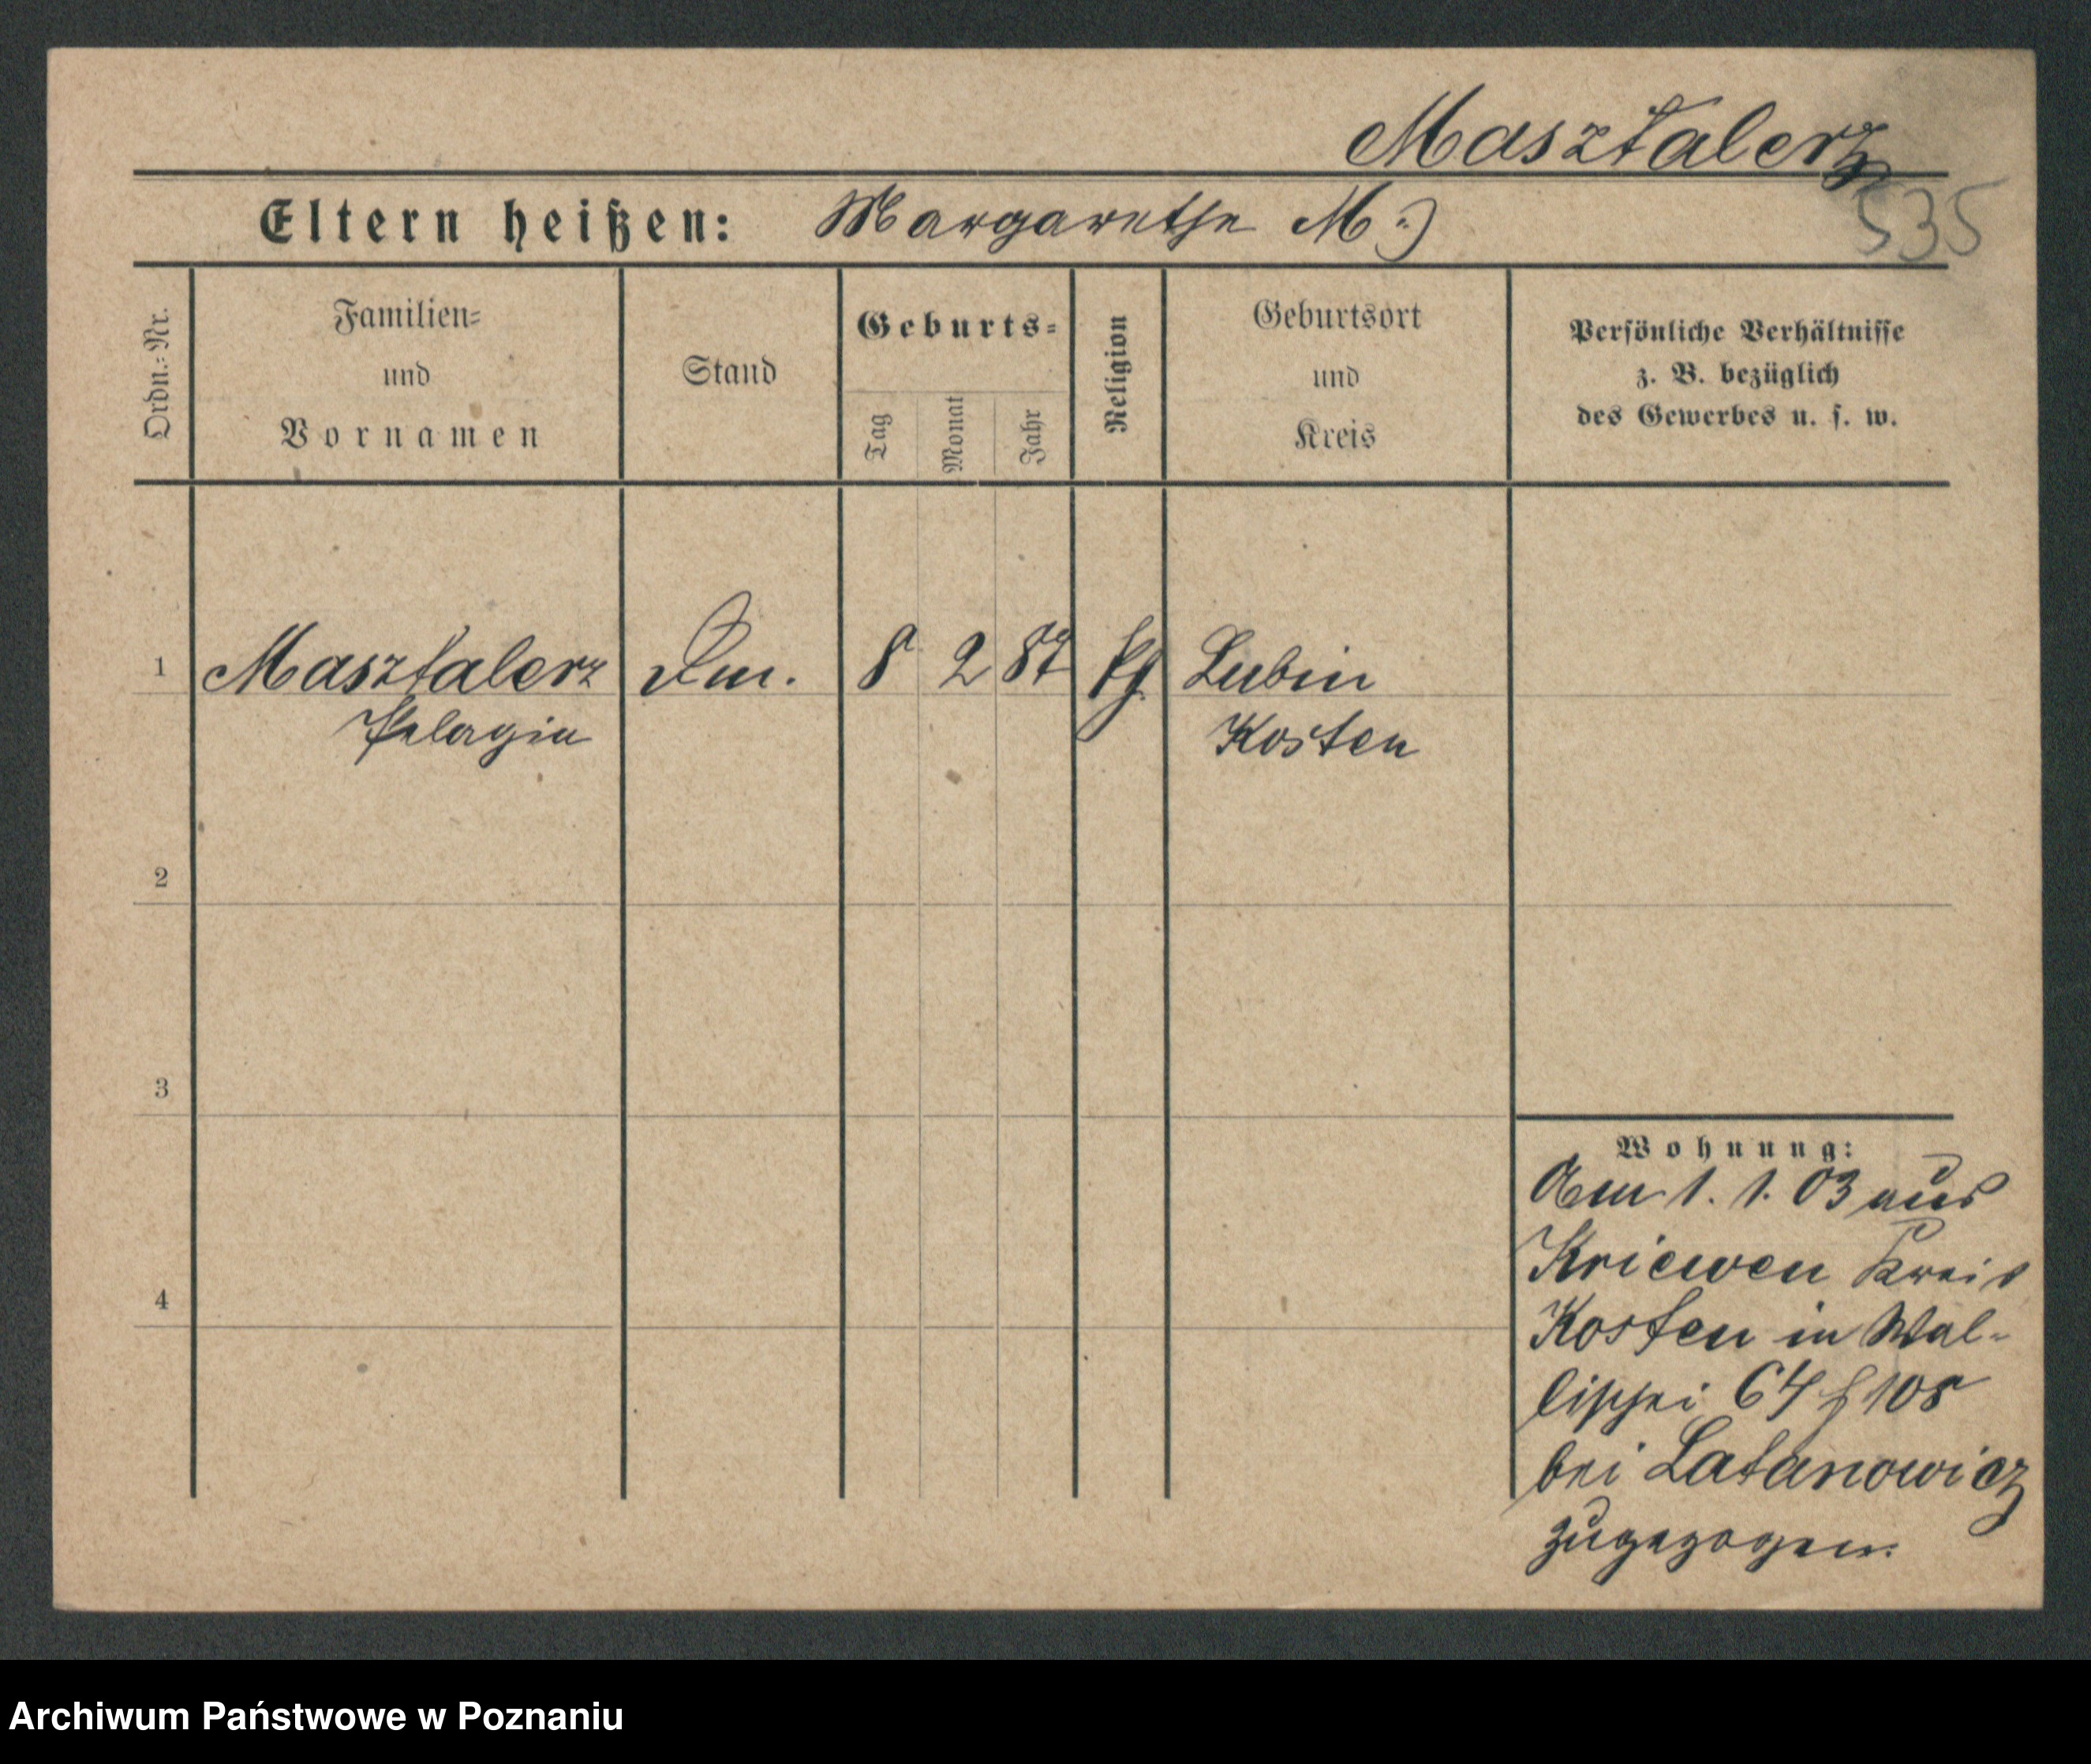 Masztalerz
535
Eltern heißen: Margarethe M.)
Ordn.-Nr.
Familien-
und
Vornamen
Stand
Geburts-
Tag
Monat
Jahr
Religion
Geburtsort
und
Kreis
Persönliche Verhältnisse
z. B. bezüglich
des Gewerbes u. s. w.
1 Masztalerz 8 2 87 Lubin
Pelagia Kosten
2
3
4
Wohnung:
Am 1. 1. 03 aus
Kriewen Kreis
Kosten in Wal-
lischei 64
bei Latanowicz
zugezogen.
Archiwum Państwowe w Poznaniu